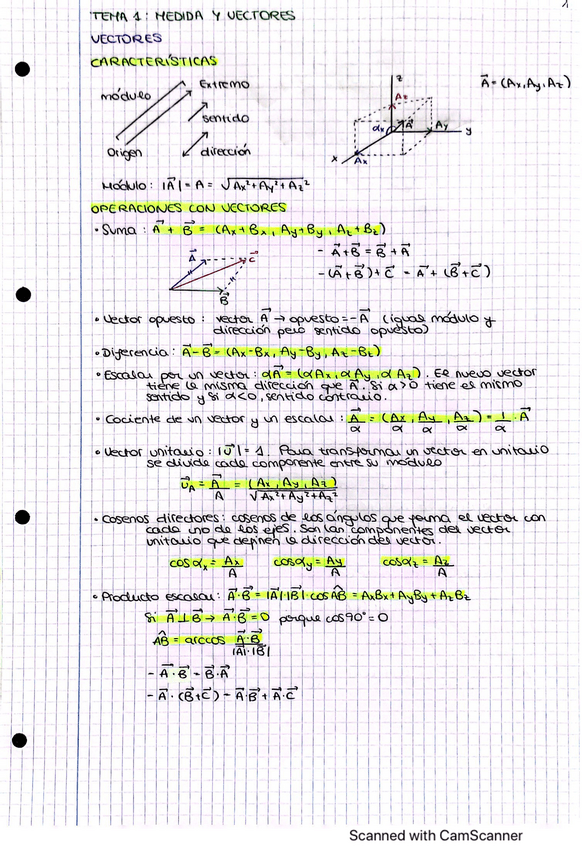 1
TEMA 1: MEDIDA Y VECTORES
VECTORES
CARACTERÍSTICAS
módulo Extremo
sentido
Origen dirección
z
Az
αx A Ay y
x Ax
A⃗ = (Ax, Ay, Az)
Módulo: |A⃗| = A = √Ax²+Ay²+Az²
OPERACIONES CON VECTORES
• Suma: A⃗ + B⃗ = (Ax+Bx, Ay+By, Az+Bz)
- A⃗+B⃗ = B⃗+A⃗
- (A⃗+B⃗)+C⃗ = A⃗+(B⃗+C⃗)
A⃗ C⃗
B⃗
• Vector opuesto: vector A⃗ → opuesto = -A⃗ (igual módulo y
dirección pero sentido opuesto)
• Diferencia: A⃗-B⃗ = (Ax-Bx, Ay-By, Az-Bz)
• Escalar por un vector: αA⃗ = (αAx, αAy, αAz). El nuevo vector
tiene la misma dirección que A⃗. Si α>0 tiene el mismo
sentido y si α<0, sentido contrario.
• Cociente de un vector y un escalar: A⃗/α = (Ax/α, Ay/α, Az/α) = 1/α · A⃗
• Vector unitario: |u⃗| = 1. Para transformar un vector en unitario
se divide cada componente entre su módulo
u⃗A = A⃗/A = (Ax, Ay, Az)/√Ax²+Ay²+Az²
• Cosenos directores: cosenos de los ángulos que forma el vector con
cada uno de los ejes. Son las componentes del vector
unitario que definen la dirección del vector.
cosαx = Ax/A cosαy = Ay/A cosαz = Az/A
• Producto escalar: A⃗·B⃗ = |A⃗|·|B⃗|·cosAB̂ = AxBx+AyBy+AzBz
Si A⃗⊥B⃗ → A⃗·B⃗ = 0 porque cos90° = 0
AB̂ = arccos A⃗·B⃗/|A⃗|·|B⃗|
- A⃗·B⃗ = B⃗·A⃗
- A⃗·(B⃗+C⃗) = A⃗·B⃗+A⃗·C⃗
Scanned with CamScanner